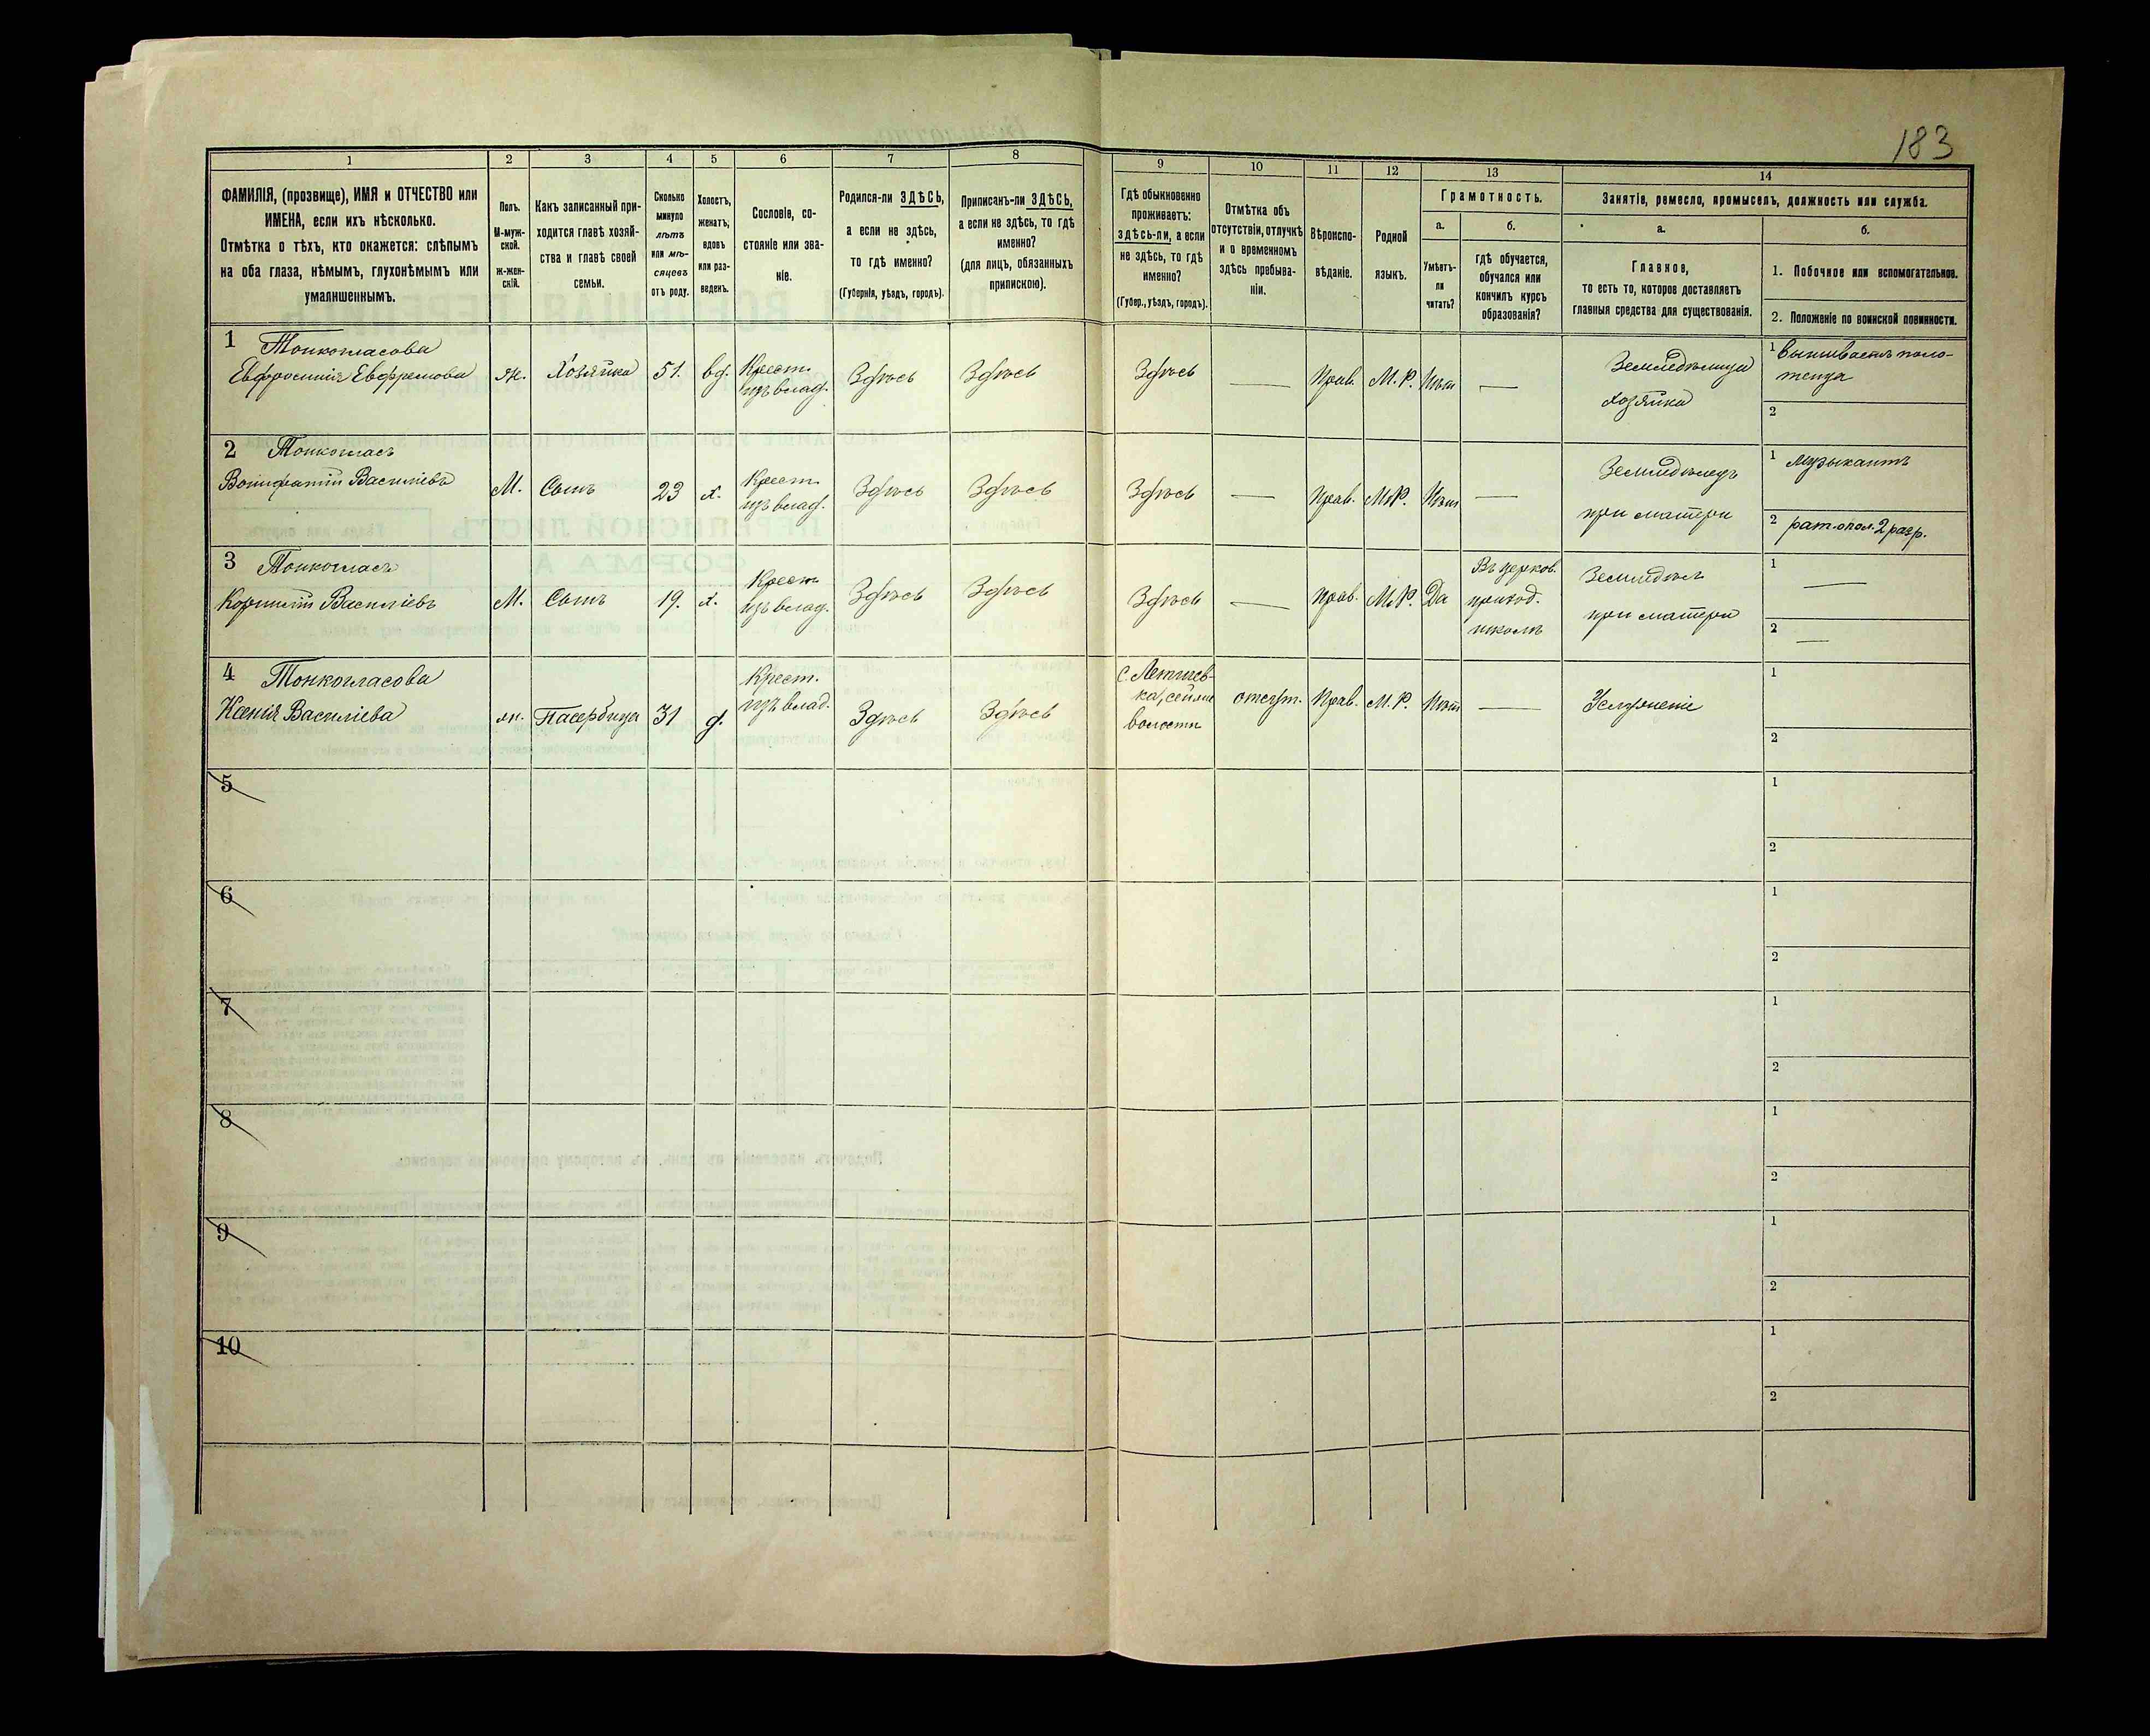 183
1
2
3
4
5
6
7
8
9
10
11
12
13
14
ФАМИЛІЯ, (прозвище), ИМЯ и ОТЧЕСТВО или
ИМЕНА, если ихъ нѣсколько.
Отмѣтка о тѣхъ, кто окажется: слѣпымъ
на оба глаза, нѣмымъ, глухонѣмымъ или
умалишеннымъ.
Полъ.
М-муж-
ской.
ж-жен-
скій.
Какъ записанный при-
ходится главѣ хозяй-
ства и главѣ своей
семьи.
Сколько
минуло
лѣтъ
или мѣ-
сяцевъ
отъ роду.
Холостъ,
женатъ,
вдовъ
или раз-
веденъ.
Сословіе, со-
стояніе или зва-
ніе.
Родился-ли ЗДѢСЬ,
а если не здѣсь,
то гдѣ именно?
(Губернія, уѣздъ, городъ).
Приписанъ-ли ЗДѢСЬ,
а если не здѣсь, то гдѣ
именно?
(для лицъ, обязанныхъ
припискою).
Гдѣ обыкновенно
проживаетъ:
здѣсь-ли, а если
не здѣсь, то гдѣ
именно?
(Губер., уѣздъ, городъ).
Отмѣтка объ
отсутствіи, отлучкѣ
и о временномъ
здѣсь пребыва-
ніи.
Вѣроиспо-
вѣданіе.
Родной
языкъ.
Грамотность.
а.
б.
Умѣетъ-
ли
читать?
гдѣ обучается,
обучался или
кончилъ курсъ
образованія?
Занятіе, ремесло, промыселъ, должность или служба.
а.
б.
Главное,
то есть то, которое доставляетъ
главныя средства для существованія.
1. Побочное или вспомогательное.
2. Положеніе по воинской повинности.
1 Тонкогласова
Евфросинія Евфремова
ж.
Хозяйка
51.
вд.
Крест.
изъ влад.
Здѣсь
Здѣсь
Здѣсь
—
Прав.
М. Р.
Нѣт
—
Земледѣлица
хозяйка
1 Вышиваетъ поло-
тенца
2
2 Тонкогласъ
Вонифатій Василіевъ
М.
Сынъ
23
х.
Крест.
изъ влад.
Здѣсь
Здѣсь
Здѣсь
—
Прав.
М. Р.
Нѣт
—
Земледѣлецъ
при матери
1 Музыкантъ
2 рат. опол. 2 разр.
3 Тонкогласъ
Корнилій Василіевъ
М.
Сынъ
19.
х.
Крест.
изъ влад.
Здѣсь
Здѣсь
Здѣсь
—
Прав.
М. Р.
Да
Въ церков.
приход.
школѣ
Земледѣл
при матери
1 —
2 —
4 Тонкогласова
Ксенія Василіева
ж.
Пасербица
31
д.
Крест.
изъ влад.
Здѣсь
Здѣсь
волости
отсут.
Прав.
М. Р.
Нѣт
—
Услуженіе
1
2
5
1
2
6
1
2
7
1
2
8
1
2
9
1
2
10
1
2